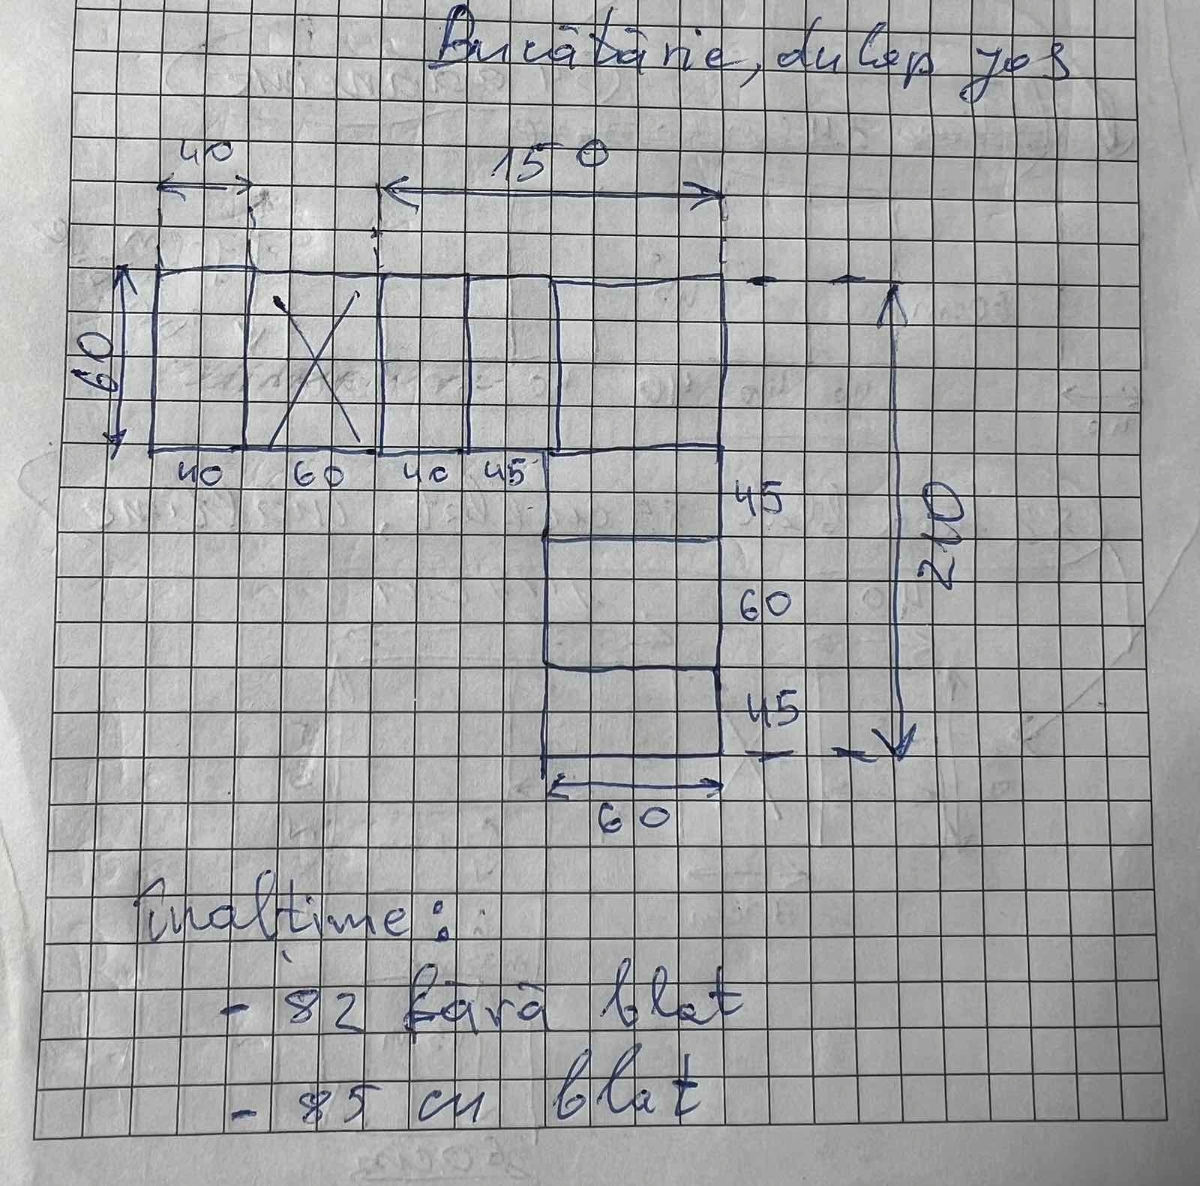 Bucătărie, dulap jos
40
150
60
40 60 40 45
45
60
210
45
60
Înălțime:
- 82 fără blat
- 85 cu blat